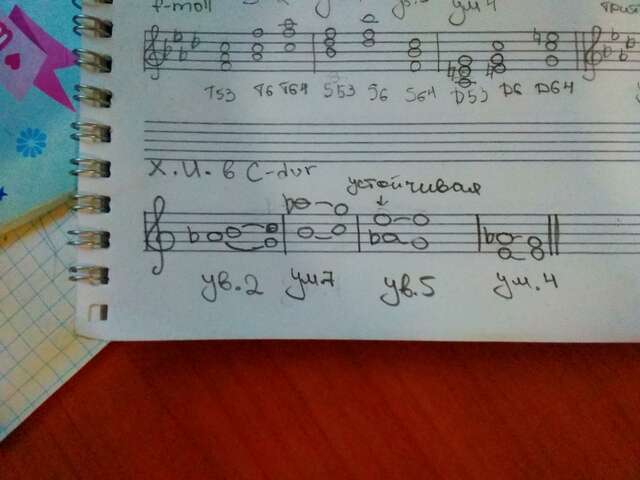 f-moll ум4
T53 T6 T64 S53 S6 S64 D53 D6 D64
Х.И. в C-dur
устойчивая
ув.2 ум7 ув.5 ум.4